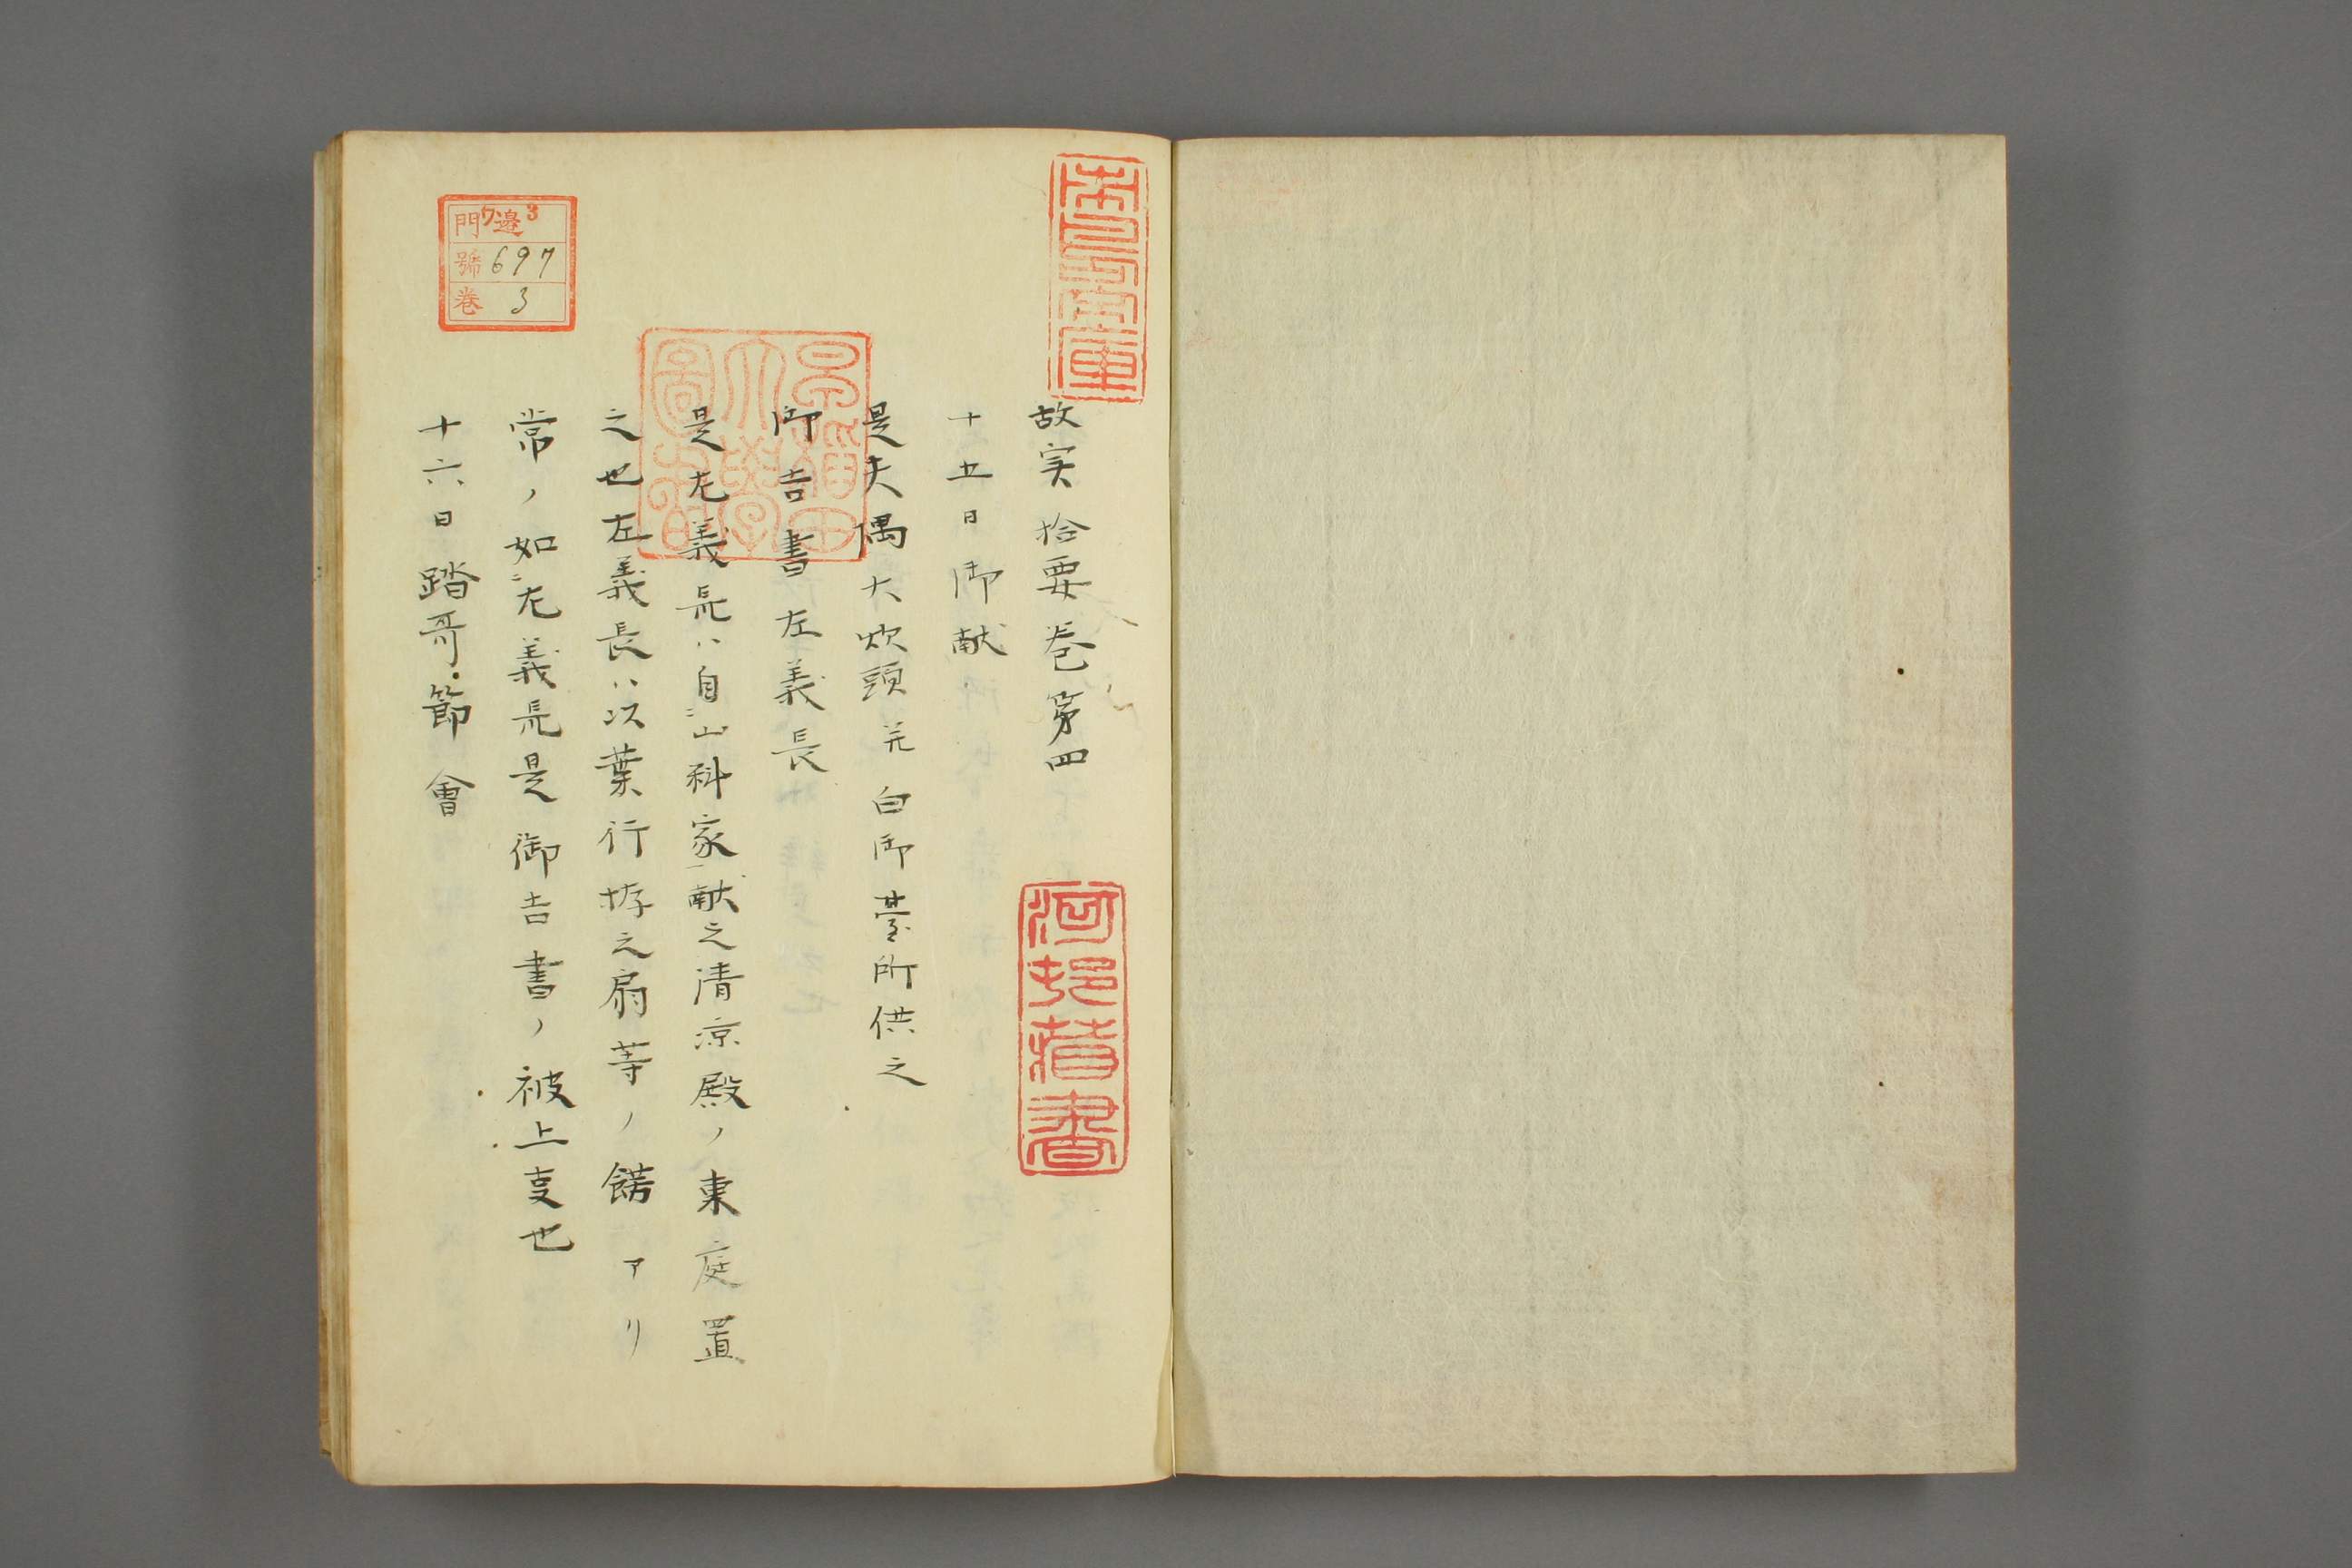 故実拾要巻第四
十五日御献
是夫偶大炊頭並白御臺所供之
御吉書左義長
是左義長ハ自ニ山科家一献之清涼殿ノ東庭置
之也左義長ハ以葉行拵之扇等ノ餝アリ
常ノ如ニ左義長是御吉書ノ被上支也
十六日踏哥節會
門 7 邉 3
號 697
巻 3
早稲田大學圖書